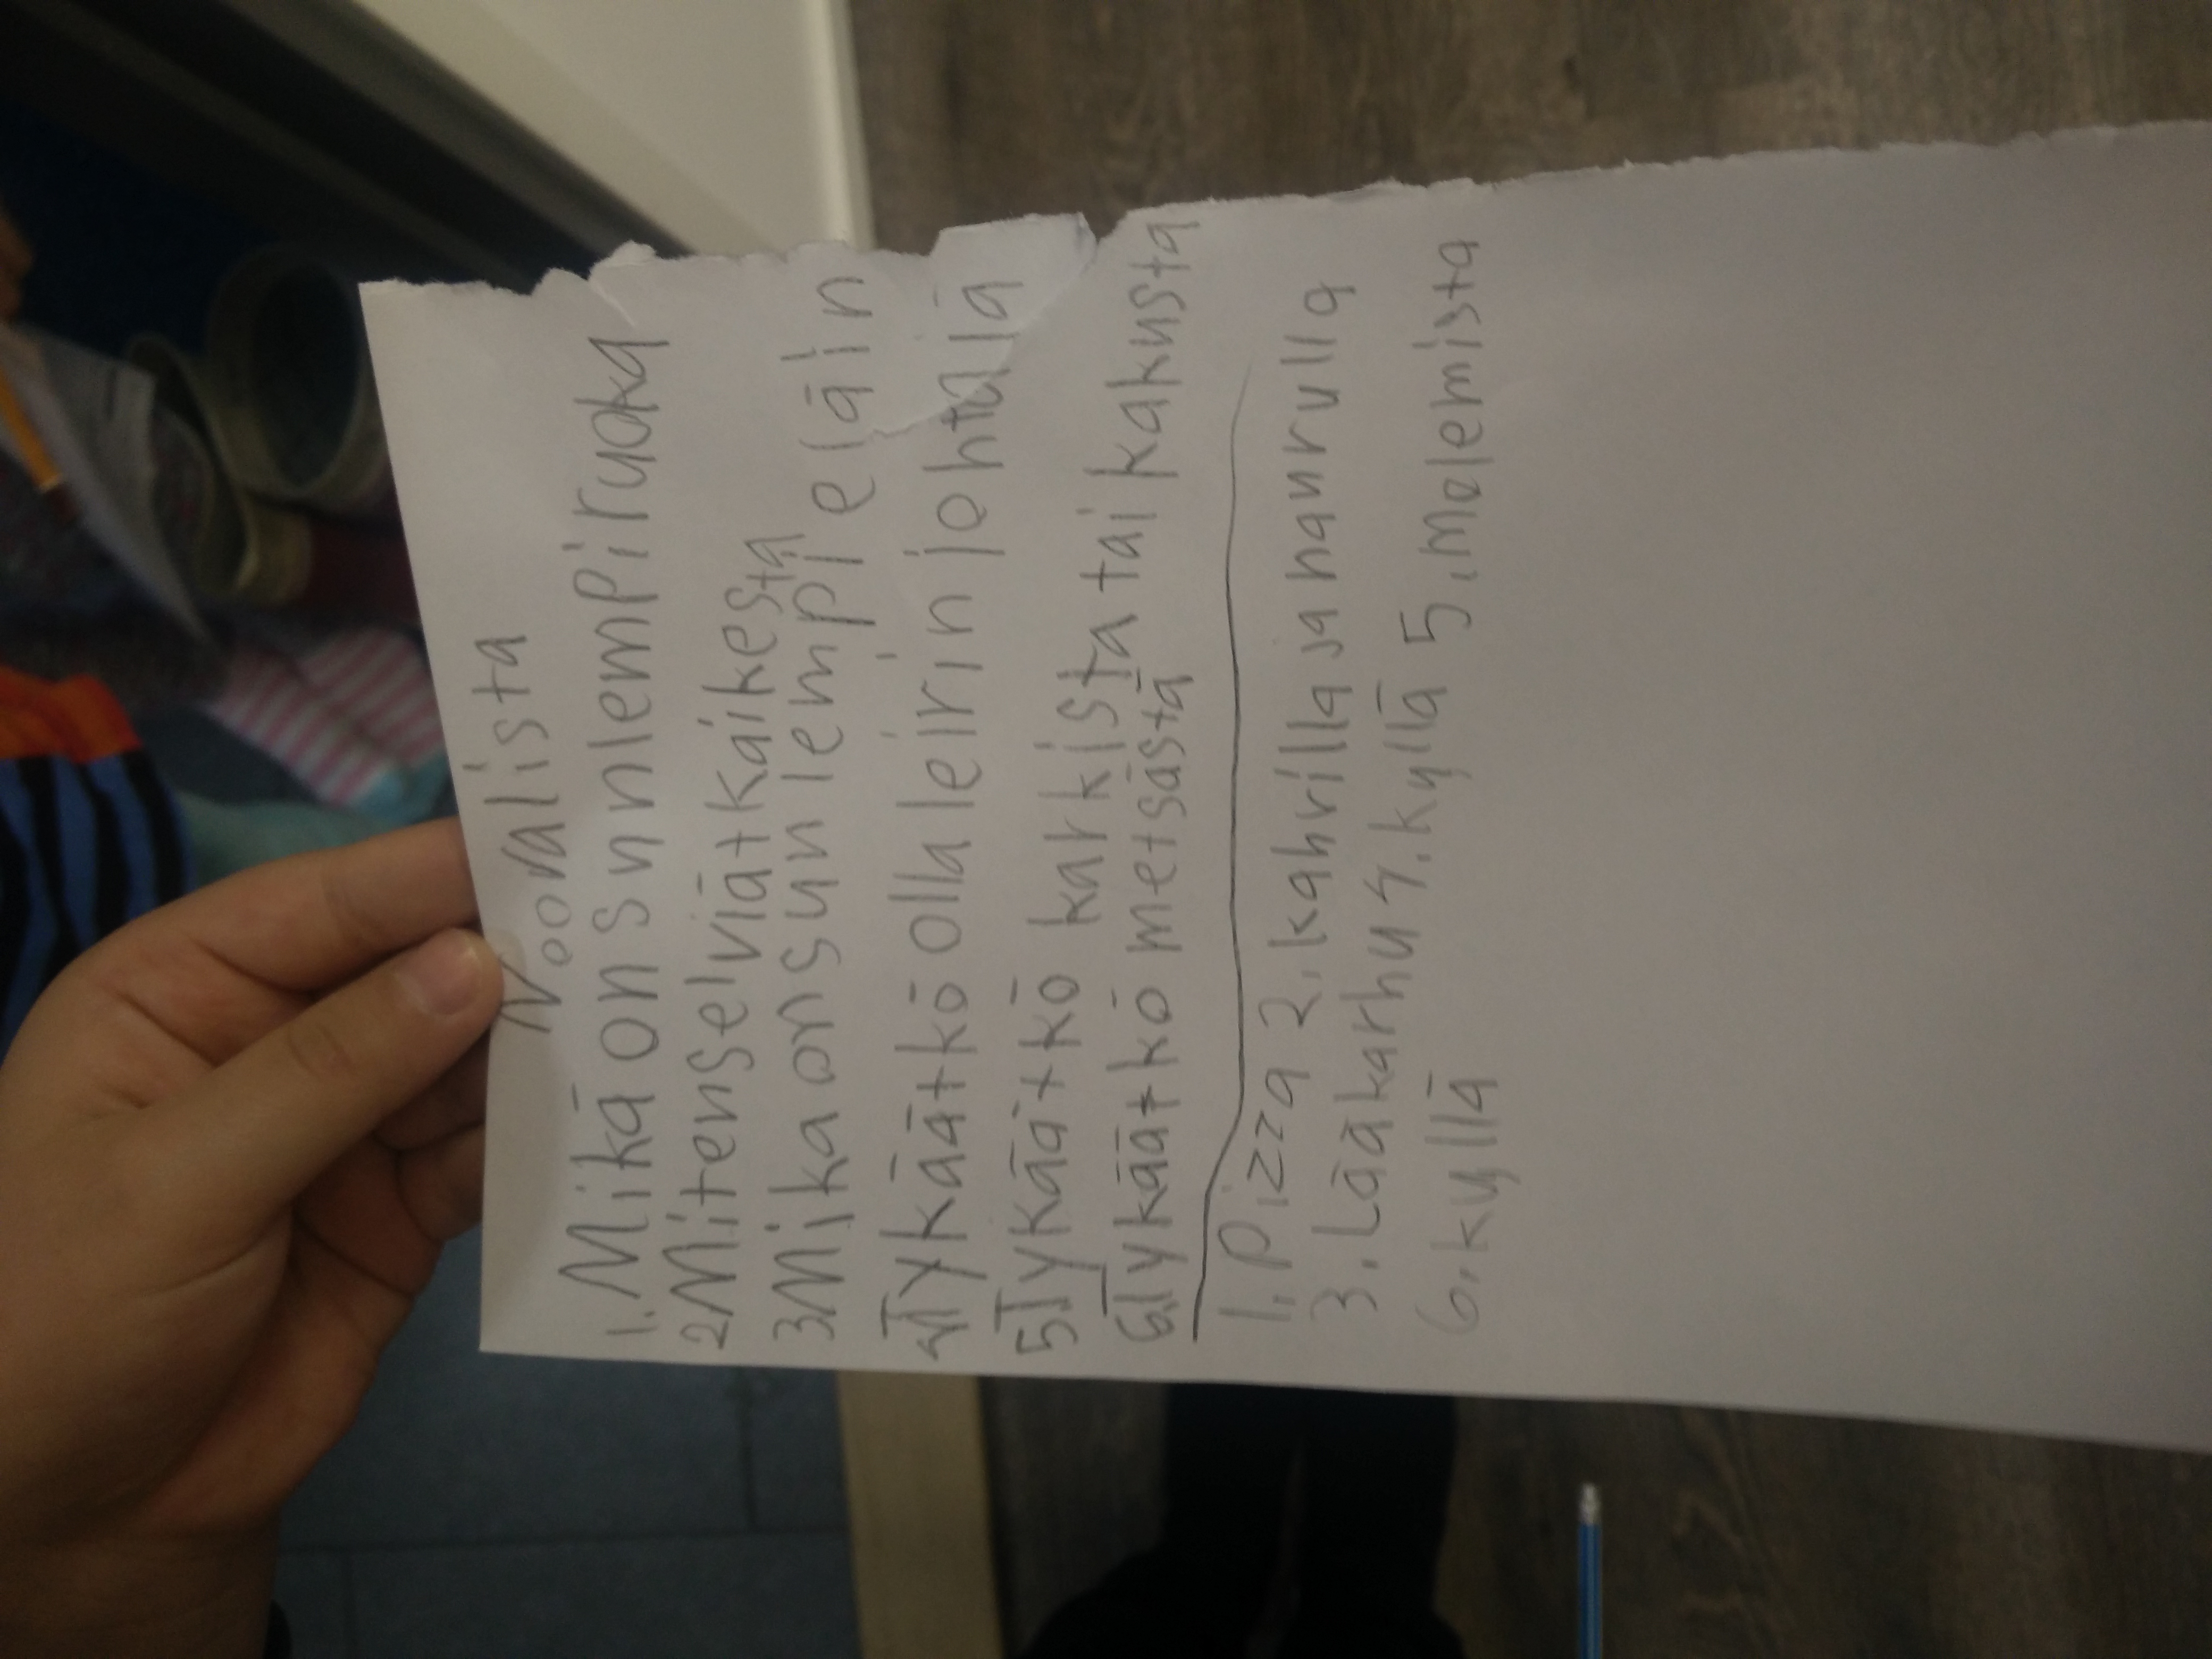 Noovalista
1. Mikä on sun lempi ruoka
2 Miten selviät kaikesta
3 Mika on sun lempi eläin
4 Tykäätkö olla leirin johtajä
5 Tykäätkö karkista tai kakusta
6 Tykäätkö metsästä
1. Pizza 2. kahvilla ja naurulla
3. Lääkarhu 4. kyllä 5. molemista
6. kyllä